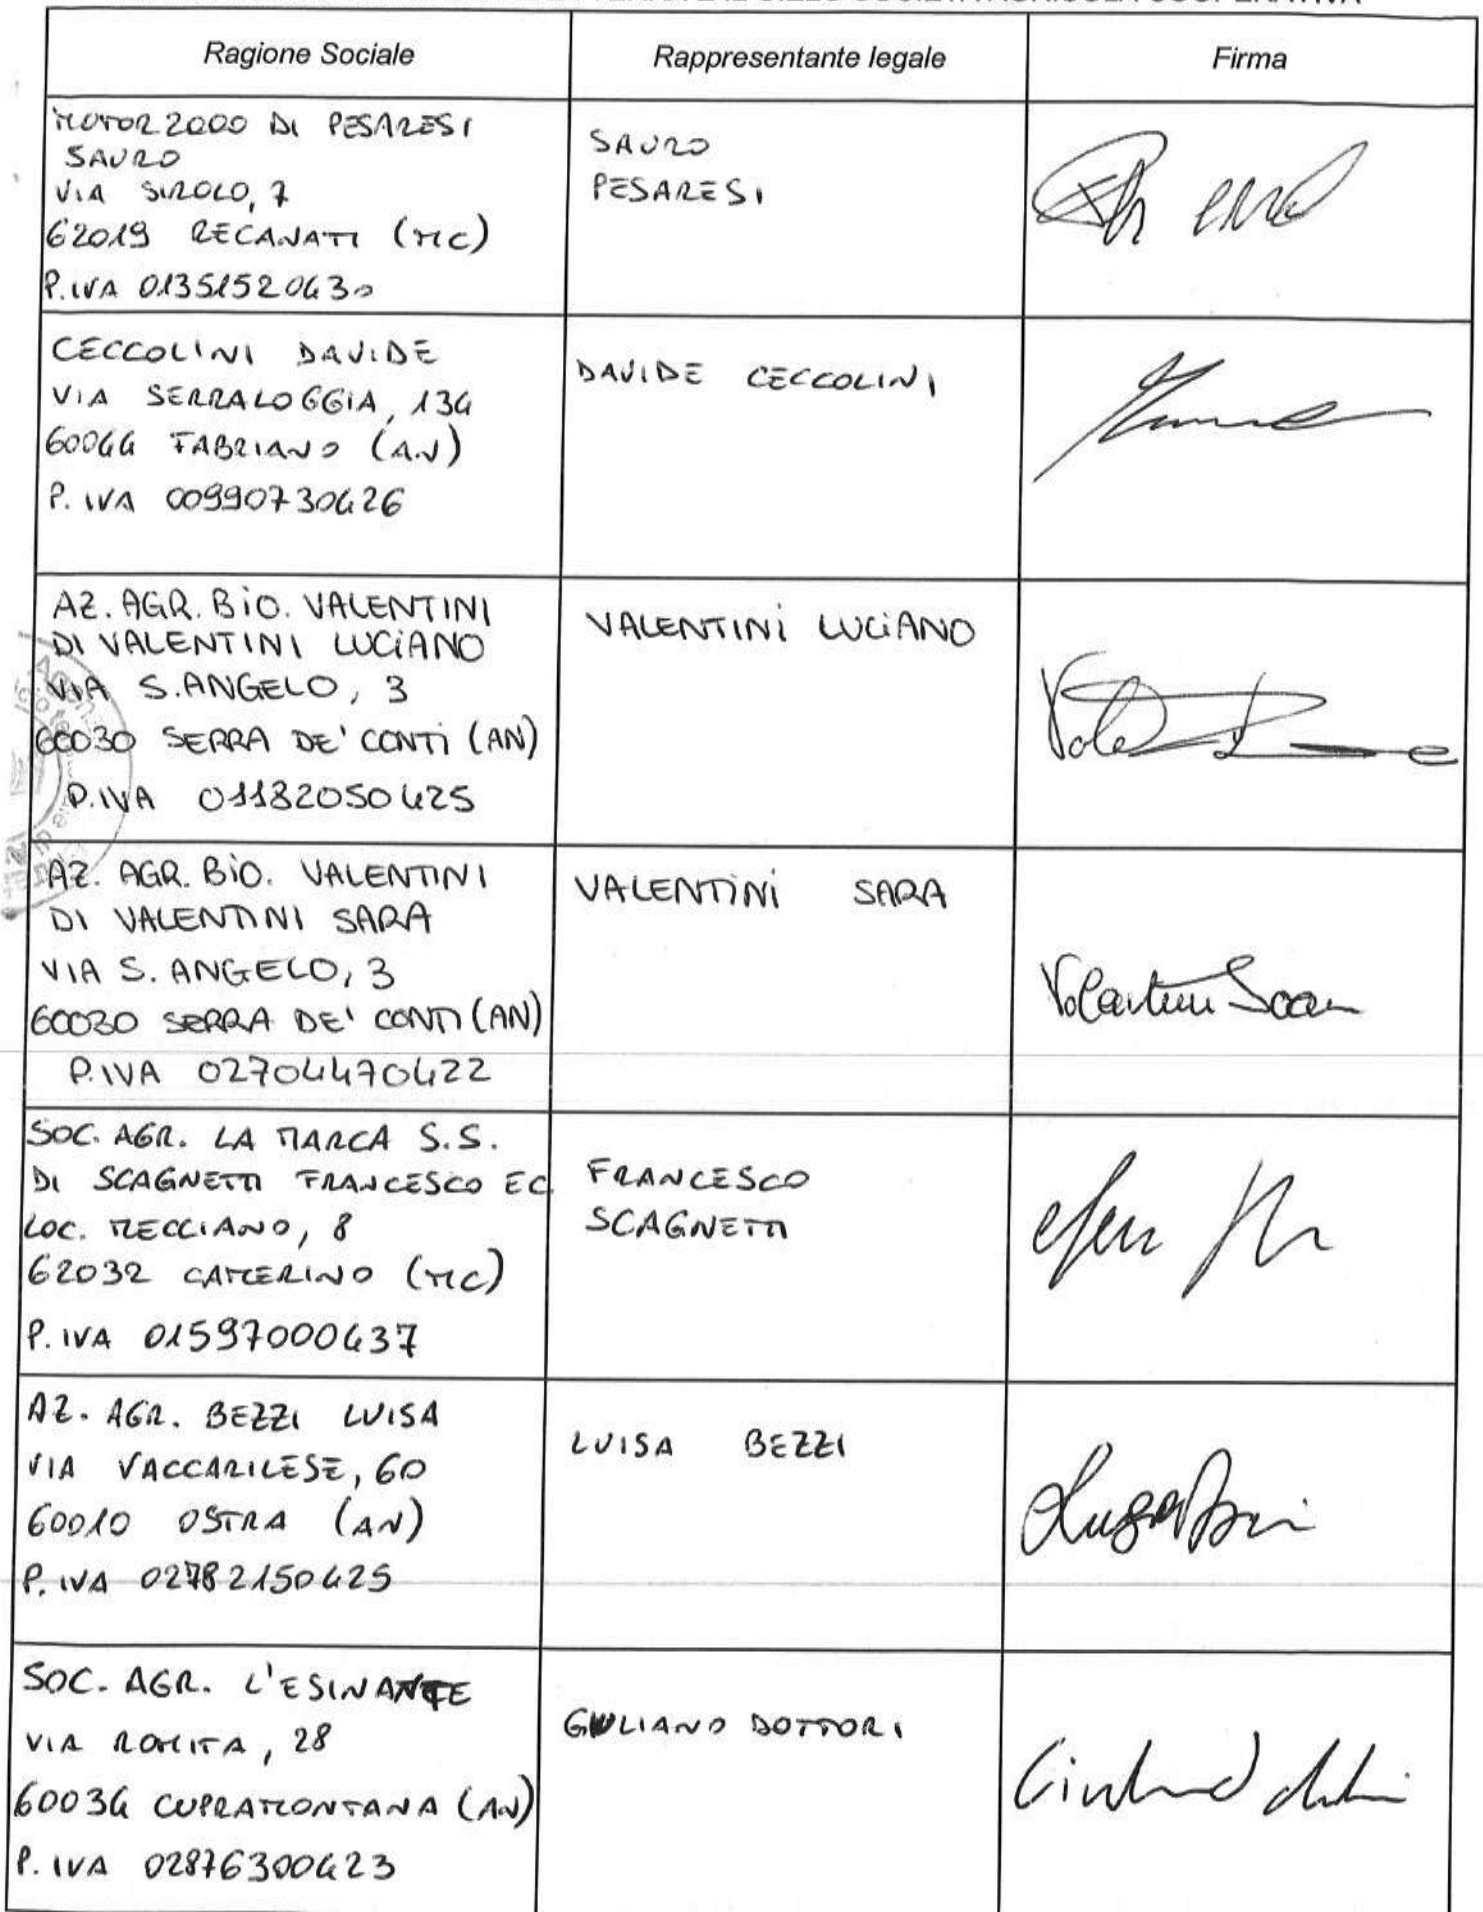 SOCIETÀ AGRICOLA COOPERATIVA
Ragione Sociale
Rappresentante legale
Firma
MOTOR2000 DI PESARESI
SAURO
VIA SIROLO, 7
62019 RECANATI (MC)
P.IVA 01351520430
SAURO
PESARESI
CECCOLINI DAVIDE
VIA SERRALOGGIA, 134
60044 FABRIANO (AN)
P. IVA 00990730426
DAVIDE CECCOLINI
AZ. AGR. BIO. VALENTINI
DI VALENTINI LUCIANO
VIA S. ANGELO, 3
60030 SERRA DE' CONTI (AN)
P.IVA 01182050425
VALENTINI LUCIANO
AZ. AGR. BIO. VALENTINI
DI VALENTINI SARA
VIA S. ANGELO, 3
60030 SERRA DE' CONTI (AN)
P.IVA 02704470422
VALENTINI SARA
Valentini Sara
SOC. AGR. LA MARCA S.S.
DI SCAGNETTI FRANCESCO EC
LOC. MECCIANO, 8
62032 CAMERINO (MC)
P. IVA 01597000437
FRANCESCO
SCAGNETTI
AZ. AGR. BEZZI LUISA
VIA VACCARILESE, 60
60010 OSTRA (AN)
P. IVA 02782150425
LUISA BEZZI
SOC. AGR. L'ESINANTE
VIA ROMITA, 28
60034 CUPRAMONTANA (AN)
P. IVA 02876300423
GIULIANO DOTTORI